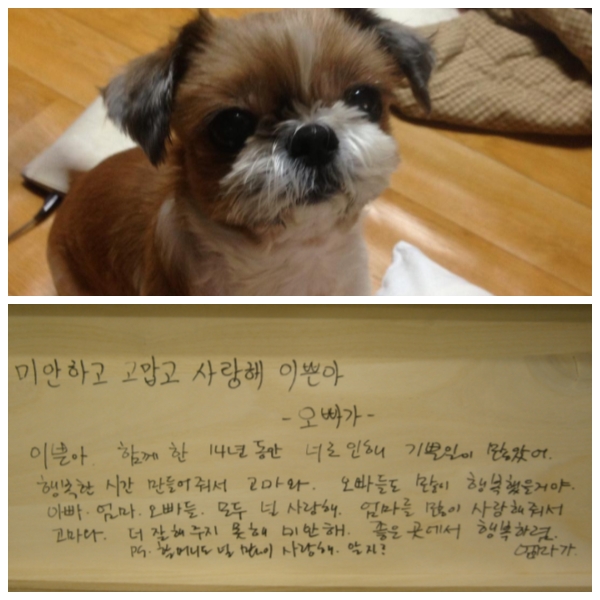 미안하고 고맙고 사랑해 이쁜아
-오빠가-
이쁜아. 함께 한 14년 동안 너로 인해 기쁜일이 많았어.
행복한 시간 만들어줘서 고마와. 오빠들도 많이 행복했을거야.
아빠. 엄마. 오빠들. 모두 널 사랑해. 엄마를 많이 사랑해줘서
고마다. 더 잘해주지 못해 미안해. 좋은 곳에서 행복하렴.
PS. 할머니도 널 많이 사랑해. 알지? 엄마가.